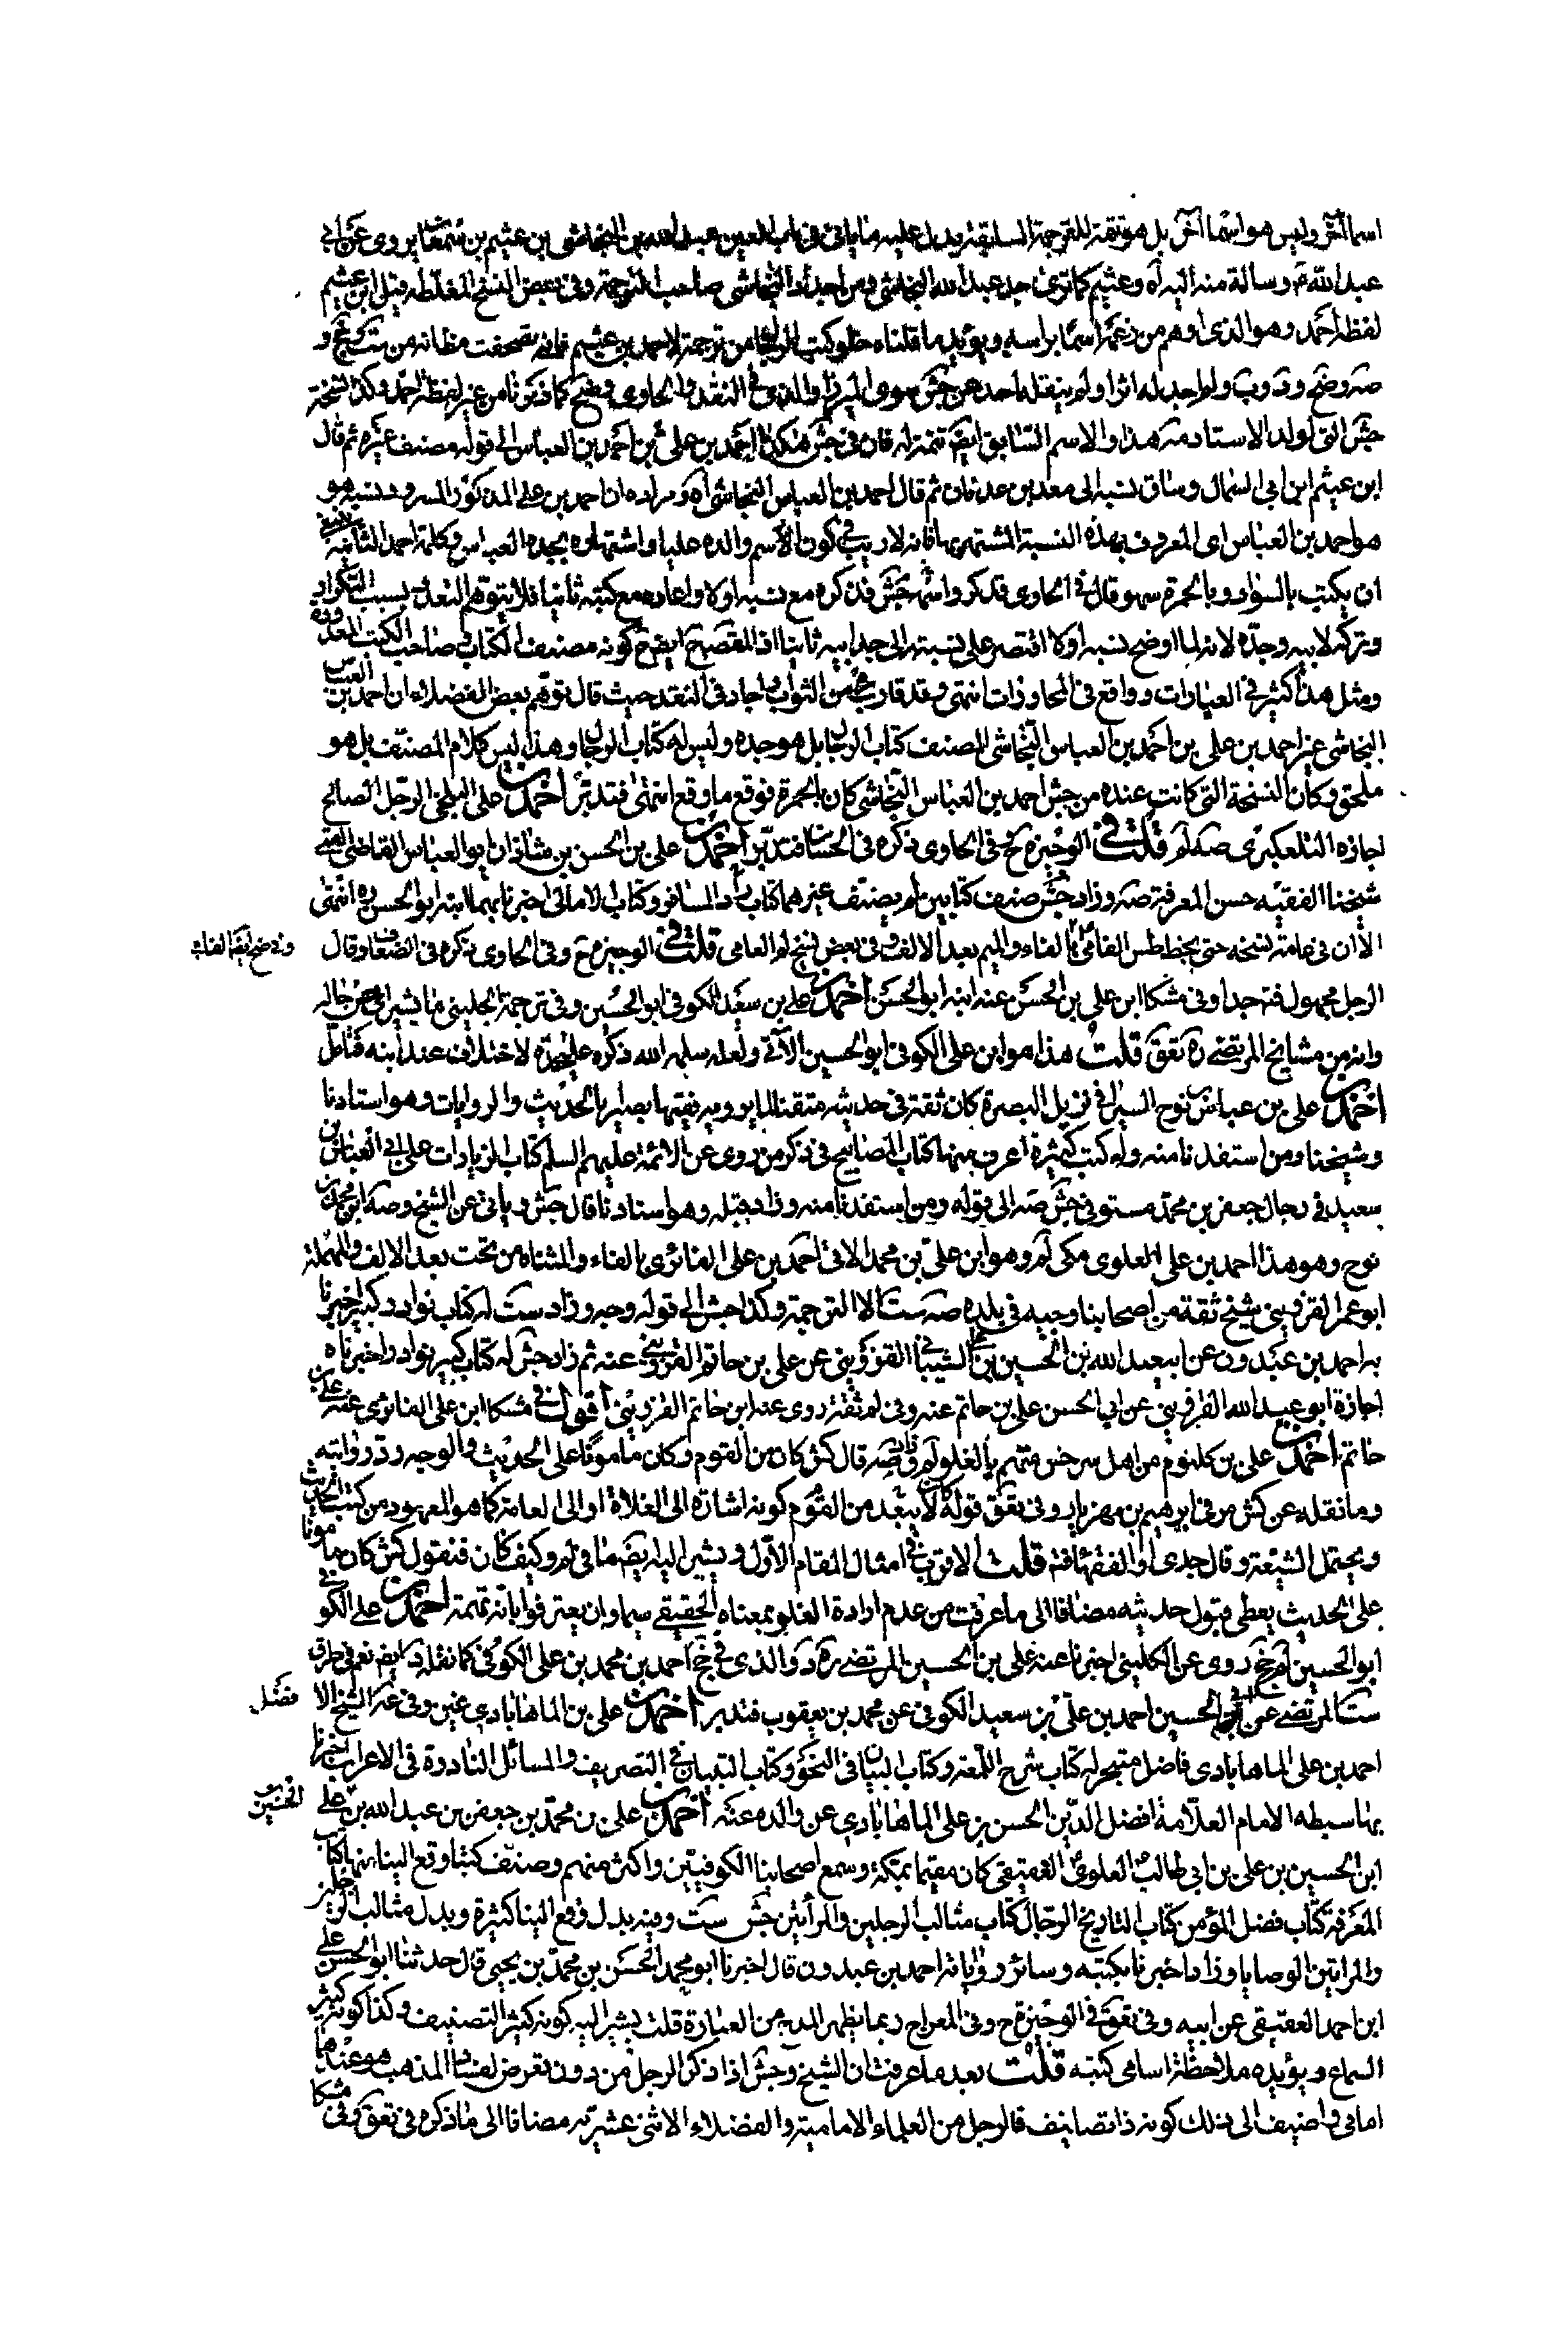 اسما آخر وليس هو اسما آخر بل هو تتمة للترجمة السابقة يدل عليه ما ياتى فى باب العين عبد الله بن النجاشى بن عثيم بن سمعان يروى عن ابى
عبد الله ع رسالة منه اليه آه وعثيم كما ترى جد عبد الله النجاشى ومن اجداد النجاشى صاحب الترجمة وفى بعض النسخ المغلطة قبل ابن عثيم
لفظة احمد وهو الذى اوهم من زعمه اسما براسه ويؤيد ما قلناه خلو كتب الرجال من ترجمة لاحمد بن عثيم فانه تصفحت مظانه من ست وكش وجخ و
صه وضح ود وب ولم اجد له اثرا ولم ينقله احد عن جش سوى الميرزا والذى فى النقد والحاوى وضح كما ذكرنا من غير لفظة احمد وكذا نسخة
جش التى لولد الاستاد مة هذا والاسم السابق ايضا تتمة له فان فى جش هكذا احمد بن على بن احمد بن العباس الى قوله مصنف غيره ثم قال
ابن عيثم ابن ابى السمال وساق نسبه الى معد بن عدنان ثم قال احمد بن العباس النجاشى آه ومراده ان احمد بن على المذكور المسرود نسبه هو
هو احمد بن العباس اى المعروف بهذه النسبة المشتهر بها فانه لا ريب فى كون الاسم والده عليا واشتهاره بجده العباس وكلمة احمد الثانية ينبغى
ان يكتب بالسواد وبالحمرة سهو قال فى الحاوى قد كرر اسمه جش فذكره مع نسبه اولا واعاده مع كتبه ثانيا فلا يتوهم التعدد بسبب التكرار
وتركه لابيه وجده لانه لما اوضح نسبه اولا اقتصر على نسبته الى جد ابيه ثانيا اذ المقص ح ايضاح كونه مصنف الكتاب صاحب الكتب المعدودة
ومثل هذا كثير فى العبارات وواقع فى المحاورات انتهى وقد قارب من الثواب واجاد فى النقد حيث قال توهم بعض الفضلاء ان احمد بن العباس
النجاشى غير احمد بن على بن احمد بن العباس النجاشى المصنف كتاب الرجال بل هو جده وليس له كتاب الرجال وهذا ليس كلام المصنف بل هو
ملحق وكان النسخة التى كانت عنده من جش احمد بن العباس النجاشى كان بالحمرة فوقع ما وقع انتهى فتدبر احمد بن على البلخى الرجل الصالح
اجازه التلعكبرى صه لم قلت فى الوجيزة ح وفى الحاوى ذكره فى الحسان فتدبر احمد بن على بن الحسن بن شاذان ابو العباس القاضى القمى
شيخنا الفقيه حسن المعرفة صه وزاد جش صنف كتابين لم يصنف غيرهما كتاب زاد المسافر وكتاب الامالى اخبرنا بهما ابنه ابو الحسن ره انتهى
الا ان فى عامة نسخه حتى بخط طس الفامى بالفاء والميم بعد الالف وفى بعض نسخ لم العامى قلت فى الوجيزة ح وفى الحاوى ذكره فى الضعاف وقال
وفى ضح ايضا الفاء
الرجل مجهول فتد جدا وفى مشكا ابن على بن الحسن عنه ابنه ابو الحسن احمد بن على بن سعيد الكوفى ابو الحسين وفى ترجمة الكلينى ما يشير الى حسن حاله
وانه من مشايخ المرتضى ره تعق قلت هذا هو ابن على الكوفى ابو الحسين الآتى ولعله سلمه الله ذكره على حدة لاختلاف عند ابنه فتامل
احمد بن على بن عباس بن نوح السيرافى نزيل البصرة كان ثقة فى حديثه متقنا لما يرويه فقيها بصيرا بالحديث والروايات وهو استادنا
وشيخنا ومن استفدنا منه وله كتب كثيرة اعرف منها كتاب المصابيح فى ذكر من روى عن الائمة عليهم السلم كتاب الزيادات على ابى العباس بن
سعيد فى رجال جعفر بن محمد مستوفى جش صه الى قوله ومن استفدنا منه وزاد قبله وهو استادنا قال جش وياتى عن الشيخ وصه ابن محمد بن
نوح وهو هذا احمد بن على العلوى مكى لم وهو ابن على بن محمد الاتى احمد بن على الفائدى بالفاء والمثناة من تحت بعد الالف والمهملة
ابو عمر القزوينى شيخ ثقة من اصحابنا وجيه فى بلده صه ست الا الترجمة وكذا جش الى قوله وجه وزاد ست له كتاب نوادر كبير اخبرنا
به احمد بن عبدون عن ابى عبد الله بن الحسين بن على الشيبانى القزوينى عن على بن حاتم القزوينى عنه ثم زاد جش له كتاب كبير نوادر اخبرناه
اجازة ابو عبد الله القزوينى عن ابى الحسن على بن حاتم عنه وفى لم ثقة روى عنه ابن حاتم القزوينى اقول فى مشكا ابن على الفائدى عنه على بن
حاتم احمد بن على بن كلثوم من اهل سرخس متهم بالغلو لم وزاد صه قال كش كان من القوم وكان مامونا على الحديث والوجه رد روايته
وما نقله عن كش مر فى ابرهيم بن مهزيار وفى تعق قوله كان لا يبعد من القوم كونه اشارة الى الغلاة او الى العامة كما هو المعهود من كتب الحديث
ويحتمل الشيعة وقال جدى او الفقهاء فتد قلت الاقرب فى امثال المقام الاول ويشير اليه ايضا ما فى لم وكيف كان فنقول كش كان مامونا
على الحديث يعطى قبول حديثه مضافا الى ما عرفت من عدم ارادة الغلو بمعناه الحقيقى سيما وان يعترفوا بانه تتمة احمد بن على الكوفى
ابو الحسين لم جخ روى عن الكلينى اخبرنا عنه على بن الحسين المرتضى ره د والذى فى جخ احمد بن محمد بن على الكوفى كما نقله د ايضا نعم فى طرق
ست المرتضى عن ابى الحسين احمد بن على بن سعيد الكوفى عن محمد بن يعقوب فتدبر احمد بن على بن الماهابادى عين وفى غيره الشيخ الا فضل
احمد بن على الماهابادى فاضل متبحر له كتاب شرح اللمعة وكتاب البيان فى النحو وكتاب التبيان فى التصريف والمسائل النادرة فى الاعراب اخبرنا
بها سبطه الامام العلامة افضل الدين الحسن بن على الماهابادى عن والده عنه احمد بن على بن محمد بن جعفر بن عبد الله بن على الحسين بن
ابن الحسين بن على بن ابى طالب العلوى العقيقى كان مقيما بمكة وسمع اصحابنا الكوفيين واكثر منهم وصنف كتبا وقع الينا منها كتاب
المعرفة كتاب فضل المؤمن كتاب التاريخ الرجال كتاب مثالب الرجلين والمرأتين جش ست وفيه بدل وقع الينا كثيرة وبدل مثالب الرجلين
والمراتين الوصايا وزاد اخبرنا بكتبه وسائر رواياته احمد بن عبدون قال اخبرنا ابو محمد الحسن بن محمد بن يحيى قال حدثنا ابو الحسن على
ابن احمد العقيقى عن ابيه وفى تعق فى الوجيزة ح وفى المعراج ربما يظهر المدح من العبارة قلت يشير اليه كونه كثير التصنيف وكذا كونه كثير
السماع ويؤيده ملاحظة اسامى كتبه قلت بعد ما عرفت ان الشيخ وجش اذا ذكرا الرجل من دون تعرض لفساد المذهب هو عندهما
امامى واضيف الى ذلك كونه ذا تصانيف فالرجل من العلماء الامامية والفضلاء الاثنى عشرية مضافا الى ما ذكره فى تعق وفى مشكا